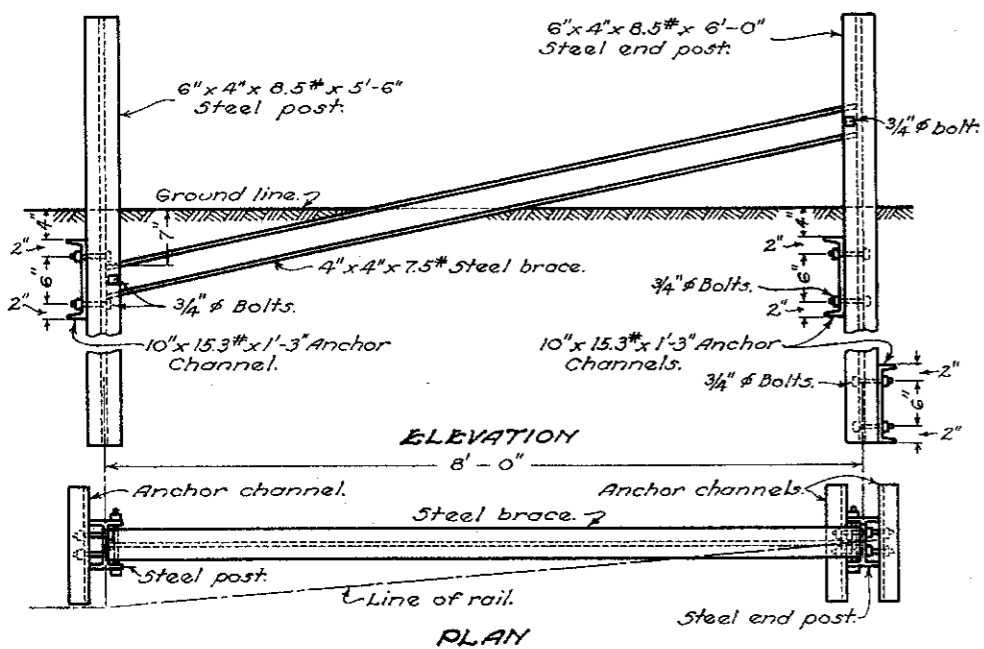 6"x 4"x 8.5# x 6'-0"
Steel end post.
6"x 4"x 8.5# x 5'-6"
Steel post.
3/4" φ bolt.
Ground line.
4"
7"
4"
2"
6"
2"
2"
6"
2"
4"x 4"x 7.5# Steel brace.
3/4" φ Bolts.
3/4" φ Bolts.
10"x 15.3# x 1'-3" Anchor
Channel.
10"x 15.3# x 1'-3" Anchor
Channels.
3/4" φ Bolts.
2"
6"
2"
ELEVATION
8' - 0"
Anchor channel.
Anchor channels.
Steel brace.
Steel post.
Line of rail.
Steel end post.
PLAN